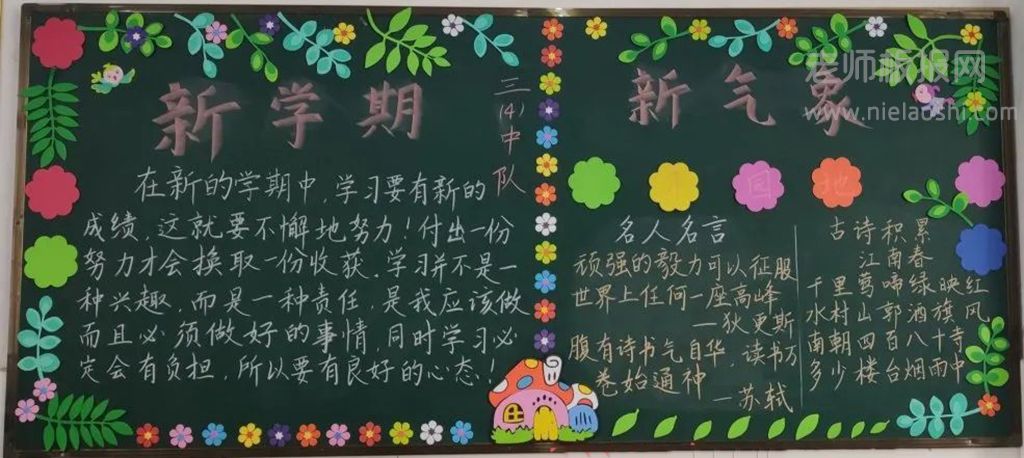 新学期
三(4)中队
在新的学期中,学习要有新的
成绩,这就要不懈地努力!付出一份
努力才会换取一份收获,学习并不是一
种兴趣,而是一种责任,是我应该做
而且必须做好的事情,同时学习必
定会有负担,所以要有良好的心态!
新气象
园地
名人名言
顽强的毅力可以征服
世界上任何一座高峰
—狄更斯
腹有诗书气自华,读书万
卷始通神
—苏轼
古诗积累
江南春
千里莺啼绿映红
水村山郭酒旗风
南朝四百八十寺
多少楼台烟雨中
老师板报网
www.nielaoshi.com